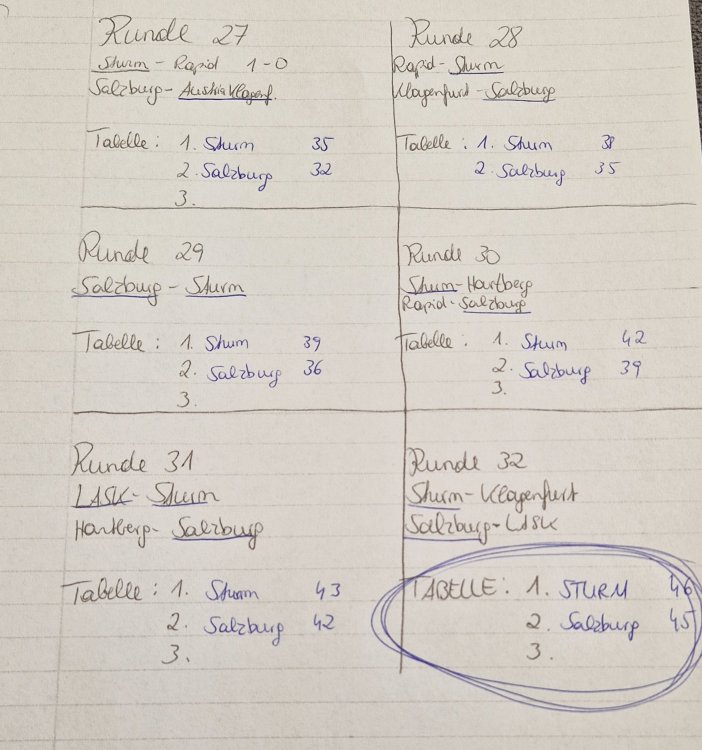 Runde 27
Sturm - Rapid 1-0
Salzburg - Austria Klagenf.
Tabelle: 1. Sturm 35
2. Salzburg 32
3.
Runde 28
Rapid - Sturm
Klagenfurt - Salzburg
Tabelle: 1. Sturm 38
2. Salzburg 35
Runde 29
Salzburg - Sturm
Tabelle: 1. Sturm 39
2. Salzburg 36
3.
Runde 30
Sturm - Hartberg
Rapid - Salzburg
Tabelle: 1. Sturm 42
2. Salzburg 39
3.
Runde 31
LASK - Sturm
Hartberg - Salzburg
Tabelle: 1. Sturm 43
2. Salzburg 42
3.
Runde 32
Sturm - Klagenfurt
Salzburg - LASK
TABELLE: 1. STURM 46
2. Salzburg 45
3.